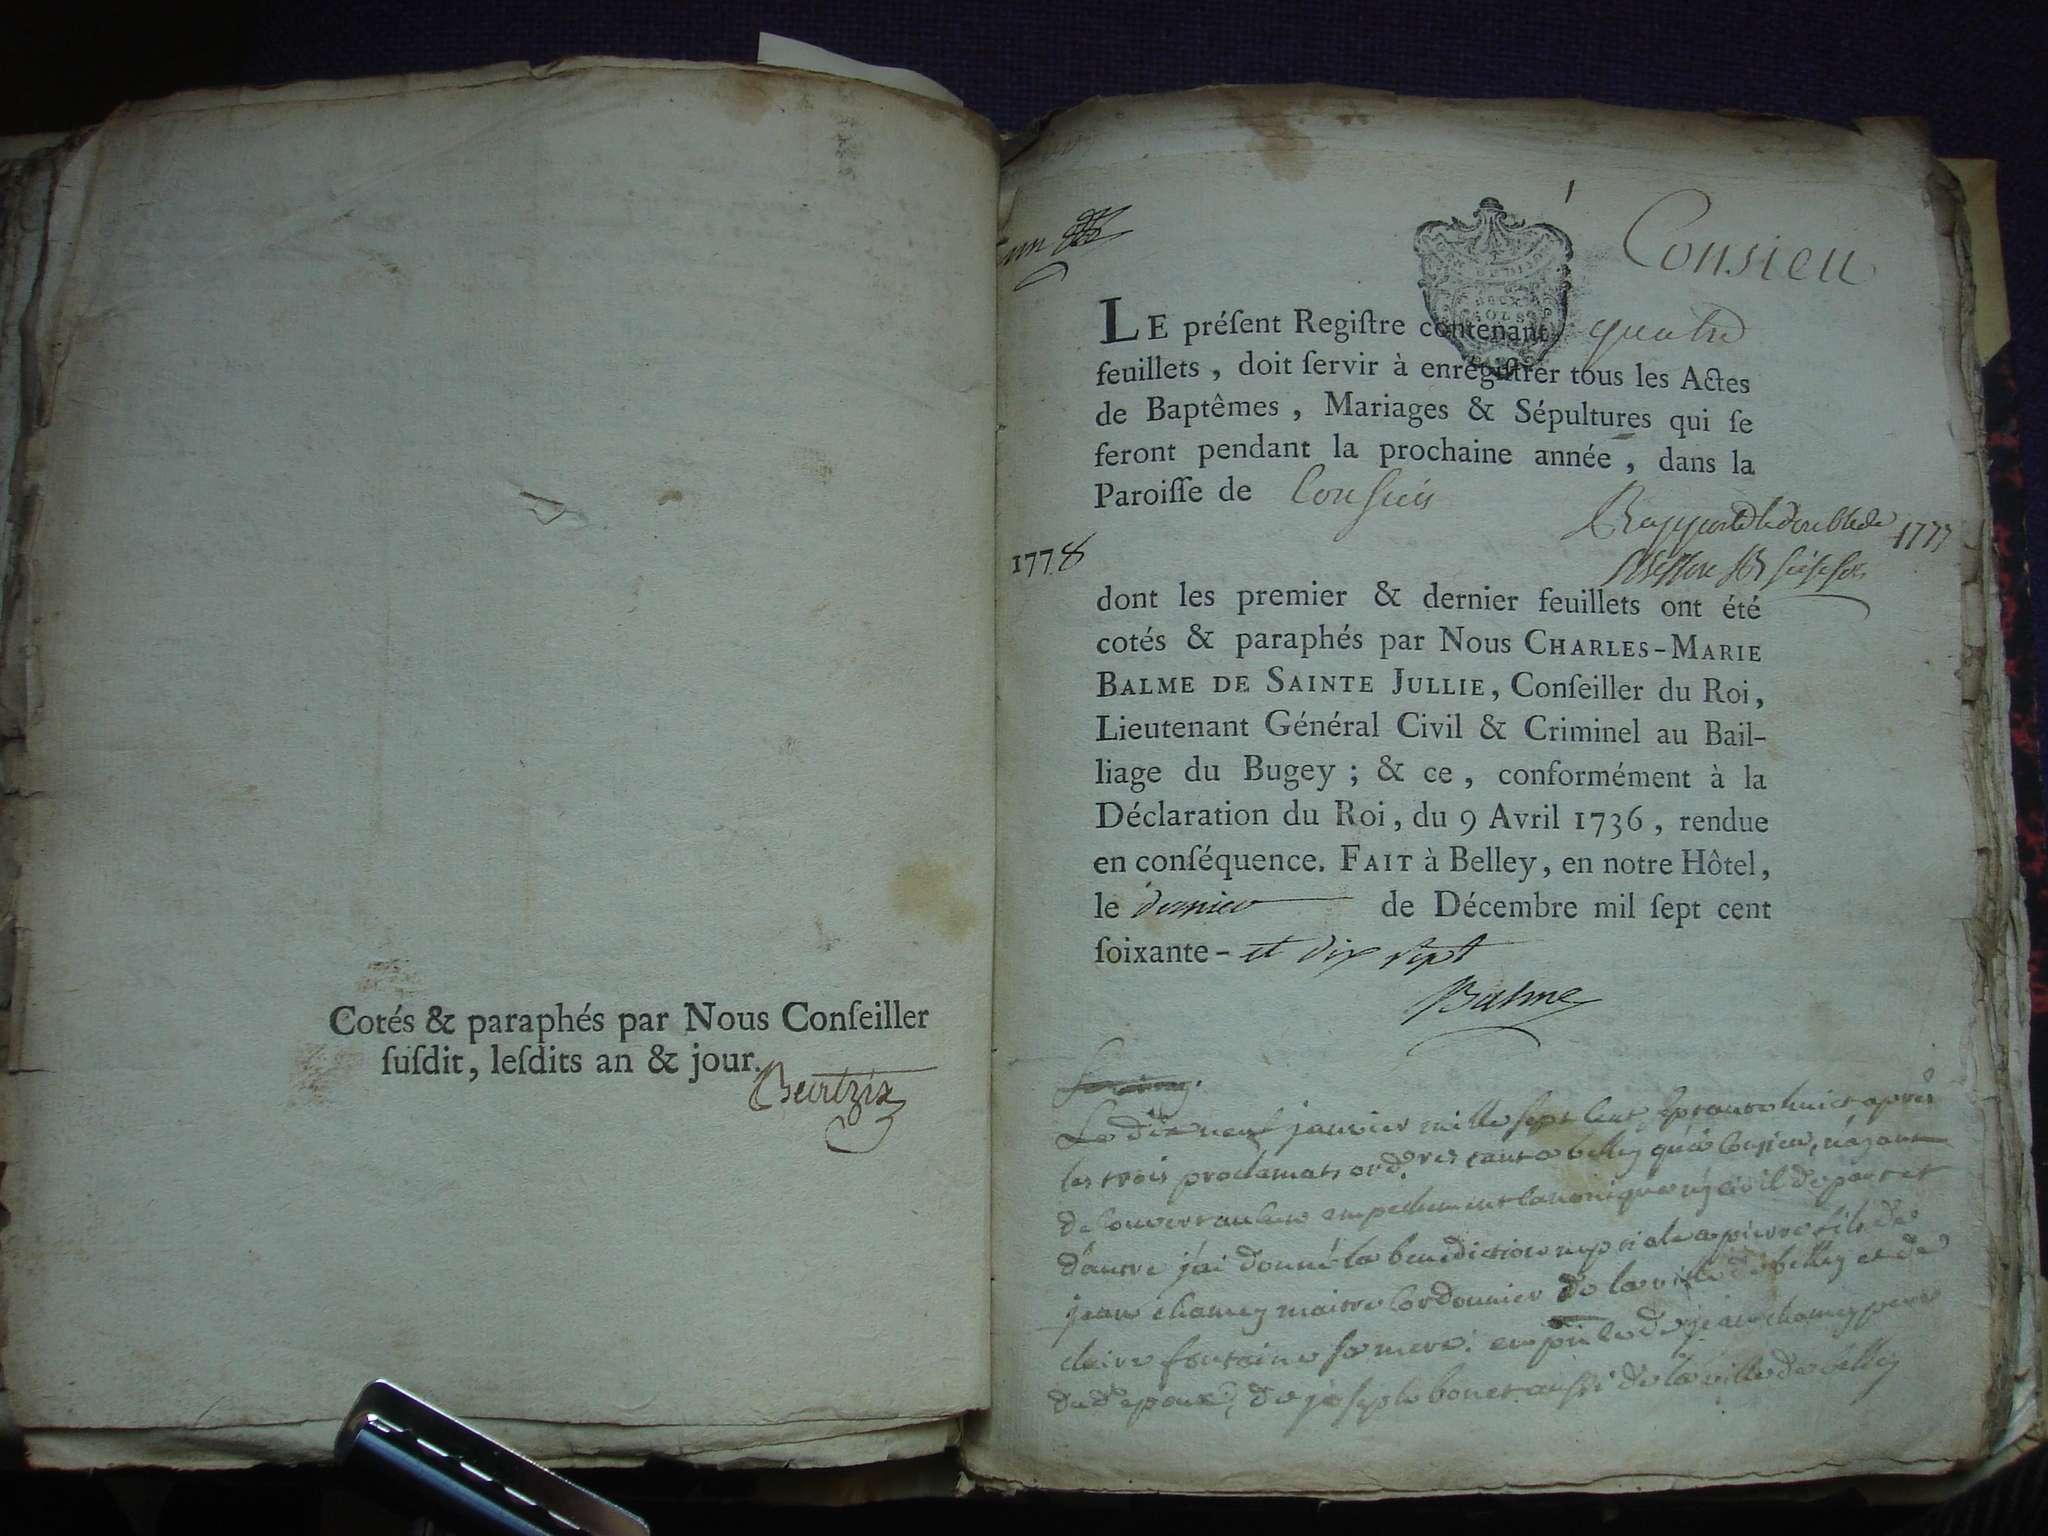 Cotés & paraphés par Nous Conſeiller
ſuſdit, leſdits an & jour.
Consieu
LE préſent Regiſtre contenant quatre
feuillets, doit ſervir à enregiſtrer tous les Actes
de Baptêmes, Mariages & Sépultures qui ſe
feront pendant la prochaine année, dans la
Paroiſſe de Consieu
1777
1778
dont les premier & dernier feuillets ont été
cotés & paraphés par Nous CHARLES-MARIE
BALME DE SAINTE JULLIE, Conſeiller du Roi,
Lieutenant Général Civil & Criminel au Bail-
liage du Bugey ; & ce, conformément à la
Déclaration du Roi, du 9 Avril 1736, rendue
en conſéquence. FAIT à Belley, en notre Hôtel,
le dernier de Décembre mil ſept cent
ſoixante- et dix sept
Balme
Le dix neuf janvier mille sept cent septante huict après
les trois proclamats ord.res tant a belley qu'a Consieu, n'ayant
decouvert aucun empechement canonique ny civil de part et
d'autre j'ai donné la benediction nuptiale a pierre fils de
jean chamey maitre Cordonnier de la ville de belley et de
claire fontaine sa mere: en pnce de jean chamey pere
du d. epoux, de joseph bonet aussi de la ville de belley